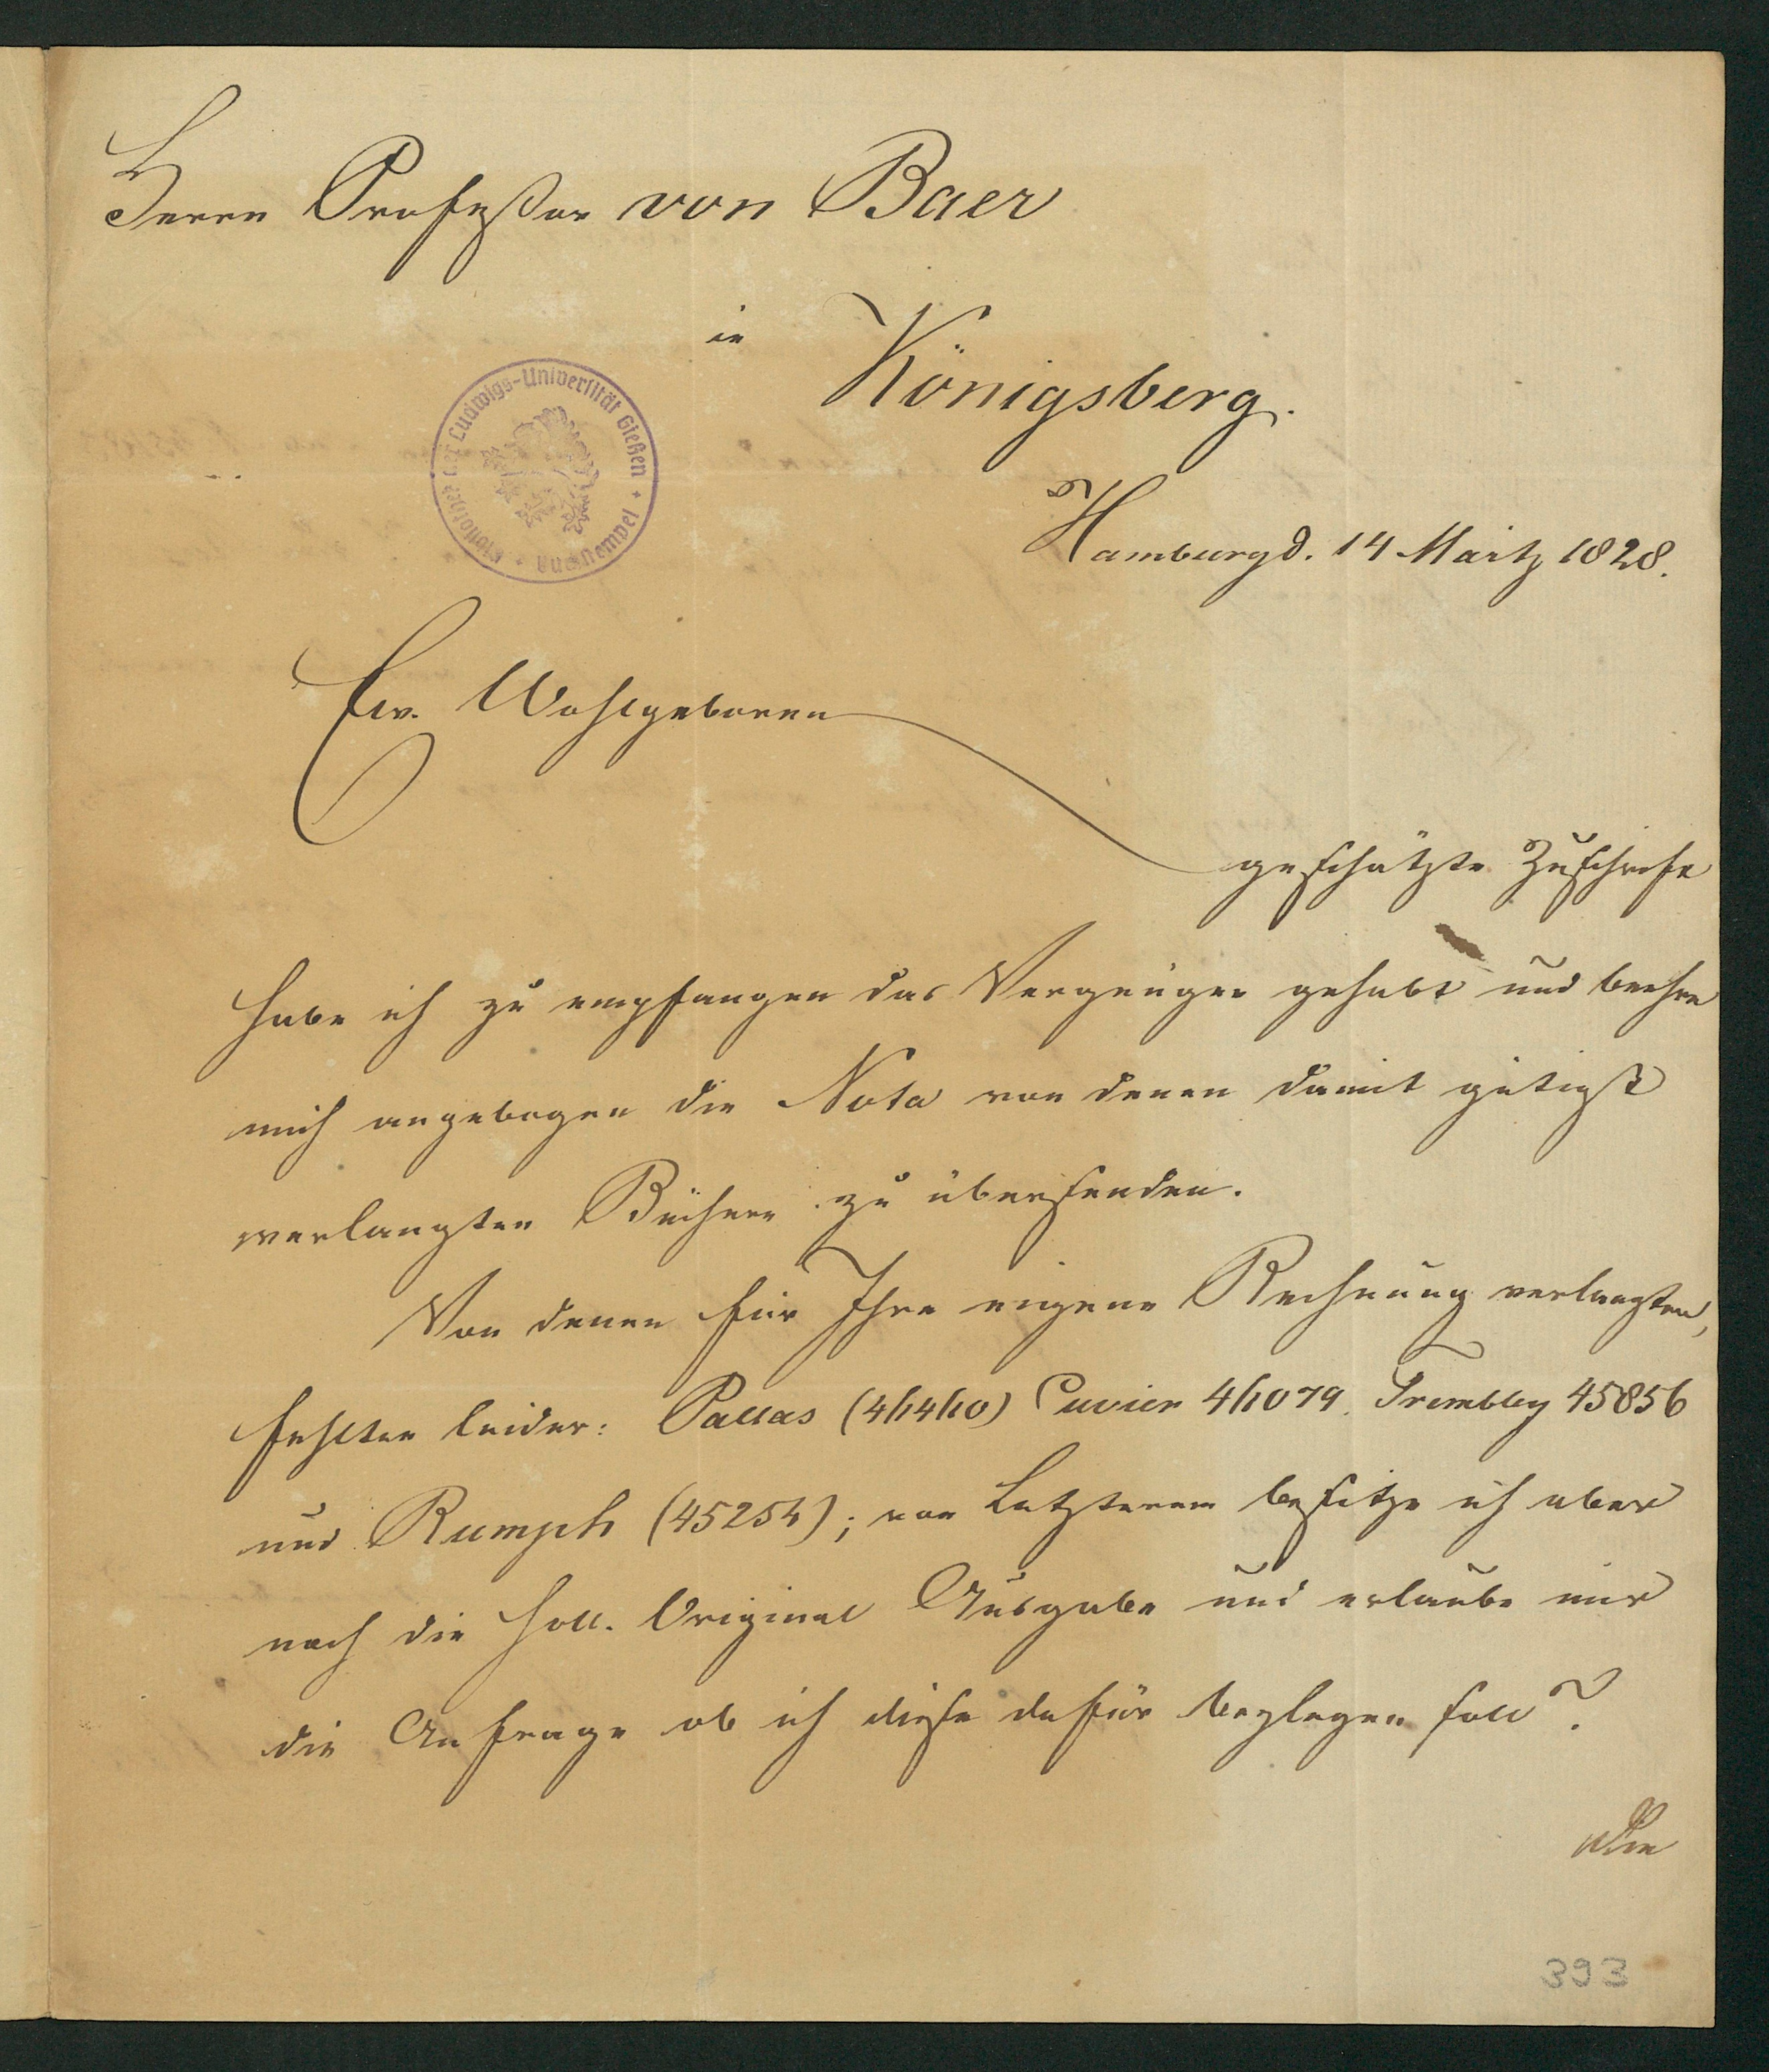 Herrn Professor von Baer
in
Königsberg.
Bibliothek der Ludwigs-Universität Gießen * Nachstempel *
Hamburg d. 14 Maitz 1828.
Ew. Wohlgeboren
geschätzte Zuschrift
habe ich zu empfangen das Vergnügen gehabt und beehre
mich angebogen die Nota von denen damit gütigst
verlangten Büchern zu übersenden.
Von denen für Ihre eigene Rechnung verlangten,
fehlten leider: Pallas (44440) Cuvier 44079. Trembley 45856
und Rumph (45254); von Letzterem besitze ich aber
noch die holl. Original Ausgabe und erlaube mir
die Anfrage ob ich diese dafür beylegen soll?
Die
393